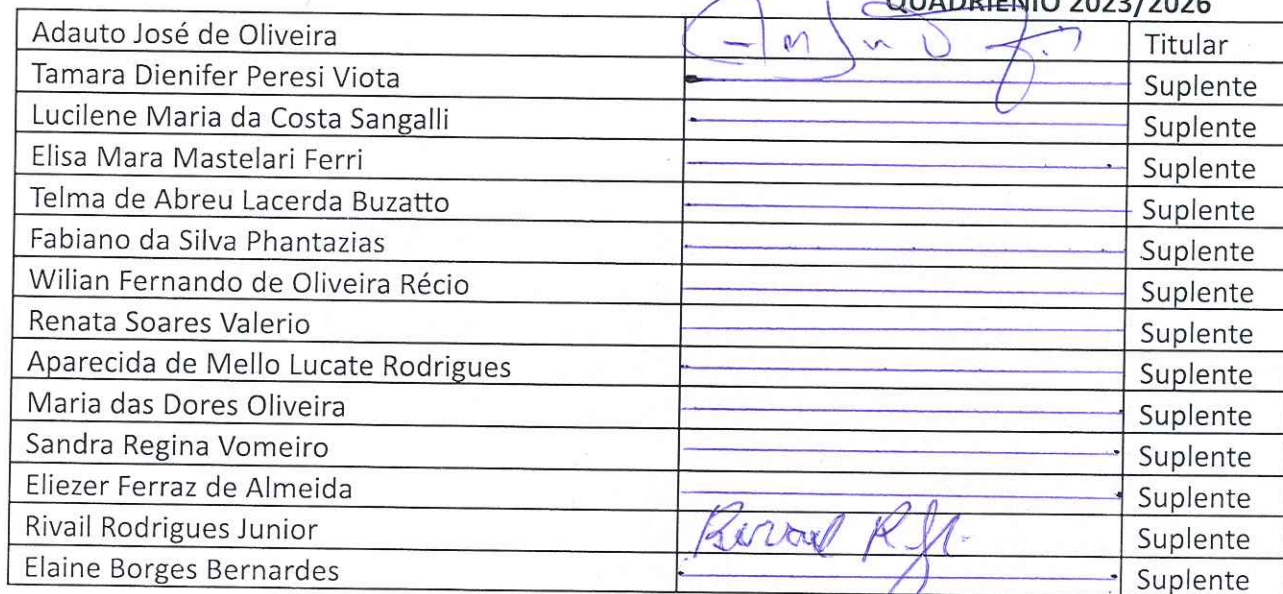 QUADRIENIO 2023/2026
Adauto José de Oliveira Titular
Tamara Dienifer Peresi Viota Suplente
Lucilene Maria da Costa Sangalli Suplente
Elisa Mara Mastelari Ferri Suplente
Telma de Abreu Lacerda Buzatto Suplente
Fabiano da Silva Phantazias Suplente
Wilian Fernando de Oliveira Récio Suplente
Renata Soares Valerio Suplente
Aparecida de Mello Lucate Rodrigues Suplente
Maria das Dores Oliveira Suplente
Sandra Regina Vomeiro Suplente
Eliezer Ferraz de Almeida Suplente
Rivail Rodrigues Junior Suplente
Elaine Borges Bernardes Suplente